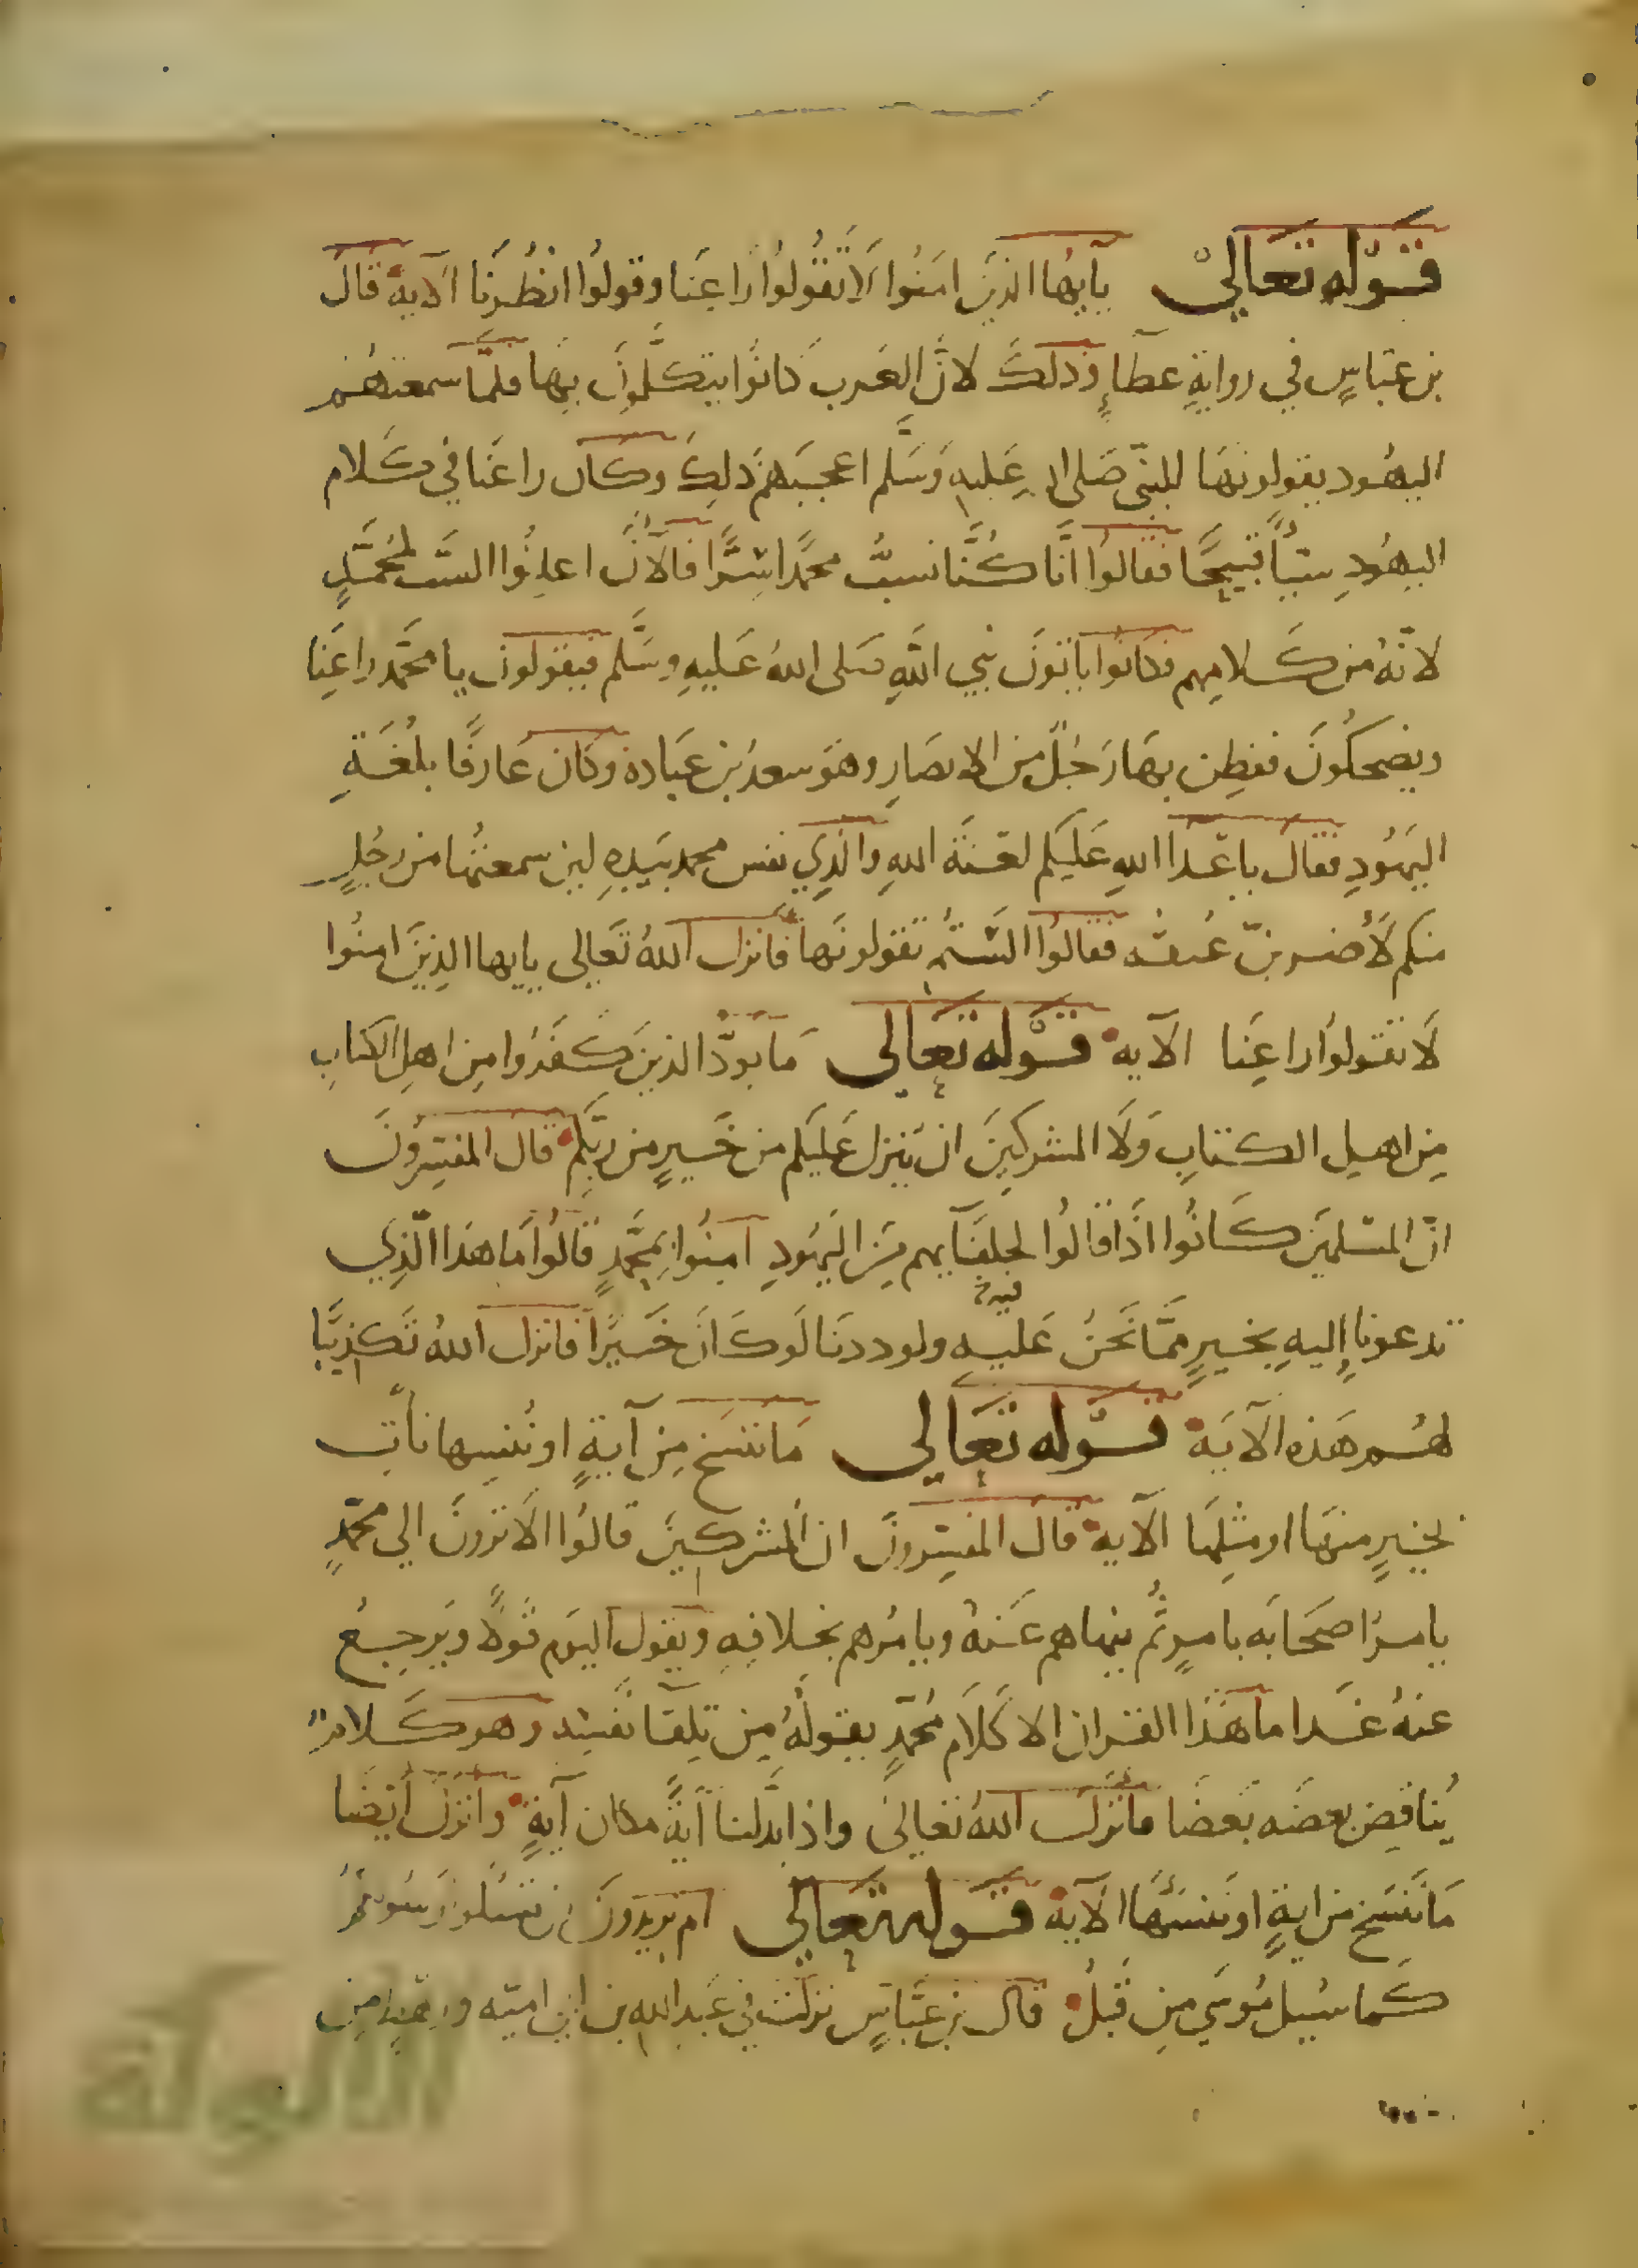 قوله تعالى يايها الذين امنوا لا تقولوا راعنا وقولوا انظرنا الآية قال
بن عباس في رواية عطاء وذلك لان العرب كانوا يتكلمون بها فلما سمعتهم
اليهود يقولونها للنبي صلى الله عليه وسلم اعجبهم ذلك وكان راعنا في كلام
اليهود سبا قبيحا فقالوا انا كنا نسب محمدا سرا فالآن اعلنوا السب لمحمد
لانه من كلامهم فكانوا ياتون نبي الله صلى الله عليه وسلم فيقولون يا محمد راعنا
ويضحكون ففطن بها رجل من الانصار وهو سعد بن عبادة وكان عارفا بلغة
اليهود فقال يا عدا الله عليكم لعنة الله والذي نفس محمد بيده لين سمعتها من رجل
منكم لأضربن عنقه فقالوا الستم تقولونها فانزل الله تعالى يايها الذين امنوا
لا تقولوا راعنا الآية قوله تعالى ما يود الذين كفروا من اهل الكتاب
من اهل الكتاب ولا المشركين ان ينزل عليكم من خير من ربكم قال المفسرون
ان المسلمين كانوا اذا قالوا لحلفايهم من اليهود آمنوا بمحمد قالوا ما هذا الذي
تدعونا إليه بخير مما نحن عليه ولوددنا لو كان خيرا فانزل الله تكذيبا
لهم هذه الآية قوله تعالى ما ننسخ من آية او ننسها نأت
بخير منها او مثلها الآية قال المفسرون ان المشركين قالوا الا ترون الي محمد
يامر اصحابه بامر ثم ينهاهم عنه ويامرهم بخلافه ويقول اليوم قولا ويرجع
عنه غدا ما هذا القران الا كلام محمد يقوله من تلقا نفسه وهو كلام
يناقض بعضه بعضا فانزل الله تعالى واذا بدلنا آية مكان آية وانزل أيضا
ما ننسخ من اية او ننسها الآية قوله تعالى ام تريدون ان تسئلوا رسولكم
كما سئيل موسي من قبل قال بن عباس نزلت في عبد الله بن ابي امية ورهط من
الألوكة